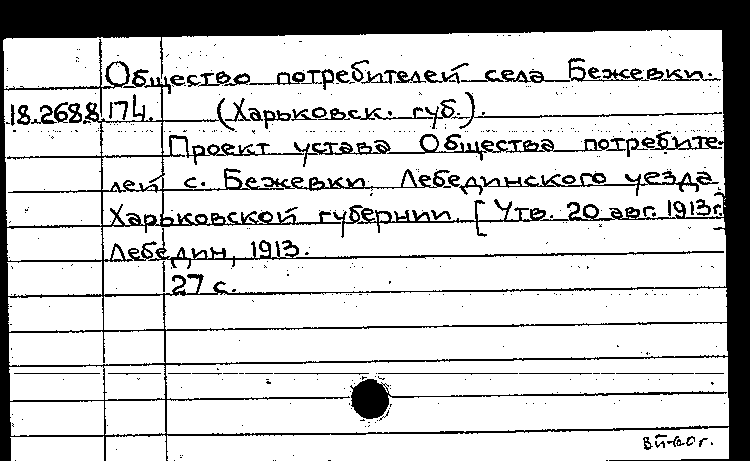 Общество потребителей села Бежевки.
18.268.8.174. (Харьковск. губ.).
Проект устава Общества потребите-
лей с. Бежевки, Лебединского уезда
Харьковской губернии. [Утв. 20 авг. 1913г.]
Лебедин, 1913.
27 с.